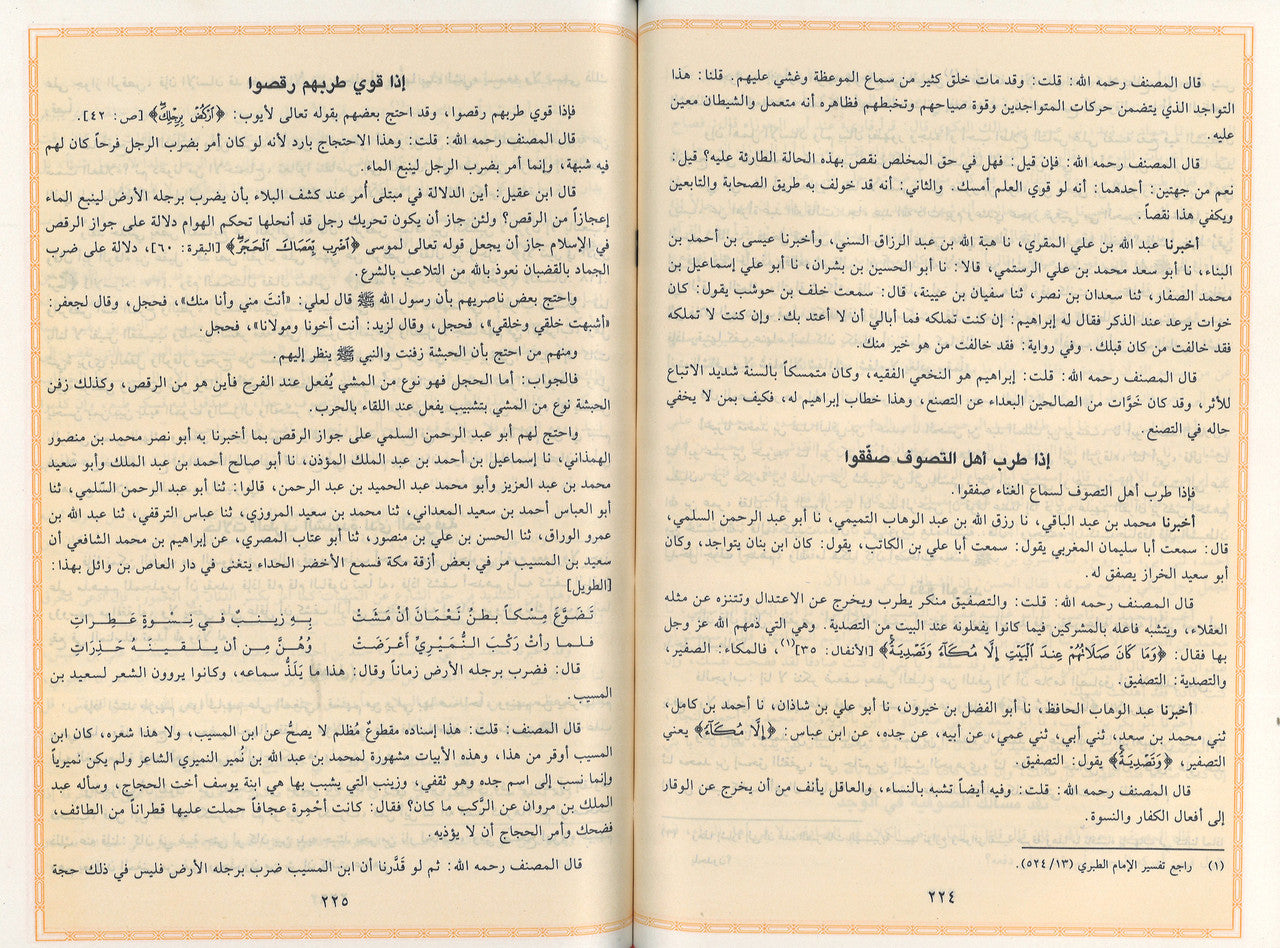 قال المصنف رحمه الله: قلت: وقد مات خلق كثير من سماع الموعظة وغشي عليهم. قلنا: هذا
التواجد الذي يتضمن حركات المتواجدين وقوة صياحهم وتخبطهم فظاهره أنه متعمل والشيطان معين
عليه.
قال المصنف رحمه الله: فإن قيل: فهل في حق المخلص نقص بهذه الحالة الطارئة عليه؟ قيل:
نعم من جهتين: أحدهما: أنه لو قوي العلم أمسك. والثاني: أنه قد خولف به طريق الصحابة والتابعين
ويكفي هذا نقصاً.
أخبرنا عبد الله بن علي المقري، نا هبة الله بن عبد الرزاق السني، وأخبرنا عيسى بن أحمد بن
البناء، نا أبو سعد محمد بن علي الرستمي، قالا: نا أبو الحسين بن بشران، نا أبو علي إسماعيل بن
محمد الصفار، ثنا سعدان بن نصر، ثنا سفيان بن عيينة، قال: سمعت خلف بن حوشب يقول: كان
خوات يرعد عند الذكر فقال له إبراهيم: إن كنت تملكه فما أبالي أن لا أعتد بك. وإن كنت لا تملكه
فقد خالفت من كان قبلك. وفي رواية: فقد خالفت من هو خير منك.
قال المصنف رحمه الله: قلت: إبراهيم هو النخعي الفقيه، وكان متمسكاً بالسنة شديد الاتباع
للأثر، وقد كان خَوَّات من الصالحين البعداء عن التصنع، وهذا خطاب إبراهيم له، فكيف بمن لا يخفي
حاله في التصنع.
إذا طرب أهل التصوف صفّقوا
فإذا طرب أهل التصوف لسماع الغناء صفقوا.
أخبرنا محمد بن عبد الباقي، نا رزق الله بن عبد الوهاب التميمي، نا أبو عبد الرحمن السلمي،
قال: سمعت أبا سليمان المغربي يقول: سمعت أبا علي بن الكاتب، يقول: كان ابن بنان يتواجد، وكان
أبو سعيد الخراز يصفق له.
قال المصنف رحمه الله: قلت: والتصفيق منكر يطرب ويخرج عن الاعتدال وتتنزه عن مثله
العقلاء، ويتشبه فاعله بالمشركين فيما كانوا يفعلونه عند البيت من التصدية. وهي التي ذمهم الله عز وجل
بها فقال: ﴿وَمَا كَانَ صَلَاتُهُمْ عِندَ ٱلْبَيْتِ إِلَّا مُكَآءً وَتَصْدِيَةً﴾ [الأنفال: ٣٥](١)، فالمكاء: الصفير،
والتصدية: التصفيق.
أخبرنا عبد الوهاب الحافظ، نا أبو الفضل بن خيرون، نا أبو علي بن شاذان، نا أحمد بن كامل،
ثني محمد بن سعد، ثني أبي، ثني عمي، عن أبيه، عن جده، عن ابن عباس: ﴿إِلَّا مُكَآءً﴾ يعني
التصفير، ﴿وَتَصْدِيَةً﴾ يقول: التصفيق.
قال المصنف رحمه الله: قلت: وفيه أيضاً تشبه بالنساء، والعاقل يأنف من أن يخرج عن الوقار
إلى أفعال الكفار والنسوة.
(١) راجع تفسير الإمام الطبري (١٣/ ٥٢٤).
٢٢٤
إذا قوي طربهم رقصوا
فإذا قوي طربهم رقصوا، وقد احتج بعضهم بقوله تعالى لأيوب: ﴿ٱرْكُضْ بِرِجْلِكَ﴾ [ص: ٤٢].
قال المصنف رحمه الله: قلت: وهذا الاحتجاج بارد لأنه لو كان أمر بضرب الرجل فرحاً كان لهم
فيه شبهة، وإنما أمر بضرب الرجل لينبع الماء.
قال ابن عقيل: أين الدلالة في مبتلى أمر عند كشف البلاء بأن يضرب برجله الأرض لينبع الماء
إعجازاً من الرقص؟ ولئن جاز أن يكون تحريك رجل قد أنحلها تحكم الهوام دلالة على جواز الرقص
في الإسلام جاز أن يجعل قوله تعالى لموسى ﴿ٱضْرِب بِّعَصَاكَ ٱلْحَجَرَ﴾ [البقرة: ٦٠]، دلالة على ضرب
الجماد بالقضبان نعوذ بالله من التلاعب بالشرع.
واحتج بعض ناصريهم بأن رسول الله ﷺ قال لعلي: «أنتَ مني وأنا منك»، فحجل، وقال لجعفر:
«أشبهت خلقي وخلقي»، فحجل، وقال لزيد: أنت أخونا ومولانا»، فحجل.
ومنهم من احتج بأن الحبشة زفنت والنبي ﷺ ينظر إليهم.
فالجواب: أما الحجل فهو نوع من المشي يُفعل عند الفرح فأين هو من الرقص، وكذلك زفن
الحبشة نوع من المشي بتشبيب يفعل عند اللقاء بالحرب.
واحتج لهم أبو عبد الرحمن السلمي على جواز الرقص بما أخبرنا به أبو نصر محمد بن منصور
الهمذاني، نا إسماعيل بن أحمد بن عبد الملك المؤذن، نا أبو صالح أحمد بن عبد الملك وأبو سعيد
محمد بن عبد العزيز وأبو محمد عبد الحميد بن عبد الرحمن، قالوا: ثنا أبو عبد الرحمن السّلمي، ثنا
أبو العباس أحمد بن سعيد المعداني، ثنا محمد بن سعيد المروزي، ثنا عباس الترقفي، ثنا عبد الله بن
عمرو الوراق، ثنا الحسن بن علي بن منصور، ثنا أبو عتاب المصري، عن إبراهيم بن محمد الشافعي أن
سعيد بن المسيب مر في بعض أزقة مكة فسمع الأخضر الحداء يتغنى في دار العاص بن وائل بهذا:
[الطويل]
تَضَوَّعَ مِسْكاً بَطنُ نَعْمَانَ أنْ مَشَتْ بِهِ زينبٌ في نِسْوَةٍ عَطِراتِ
فلما رأتْ رَكْبَ النُّمَيْرِيِّ أعْرَضَتْ وَهُنَّ مِن أن يلقينهُ حَذِرَاتِ
قال: فضرب برجله الأرض زماناً وقال: هذا ما يَلَذُّ سماعه، وكانوا يروون الشعر لسعيد بن
المسيب.
قال المصنف: قلت: هذا إسناده مقطوعٌ مُظلم لا يصحُّ عن ابن المسيب، ولا هذا شعره، كان ابن
المسيب أوقر من هذا، وهذه الأبيات مشهورة لمحمد بن عبد الله بن نُمير النميري الشاعر ولم يكن نميرياً
وإنما نسب إلى اسم جده وهو ثقفي، وزينب التي يشبب بها هي ابنة يوسف أخت الحجاج، وسأله عبد
الملك بن مروان عن الرَّكب ما كان؟ فقال: كانت أحْمِرة عجافاً حملت عليها قطراناً من الطائف،
فضحك وأمر الحجاج أن لا يؤذيه.
قال المصنف رحمه الله: ثم لو قَدَّرنا أن ابن المسيب ضرب برجله الأرض فليس في ذلك حجة
٢٢٥